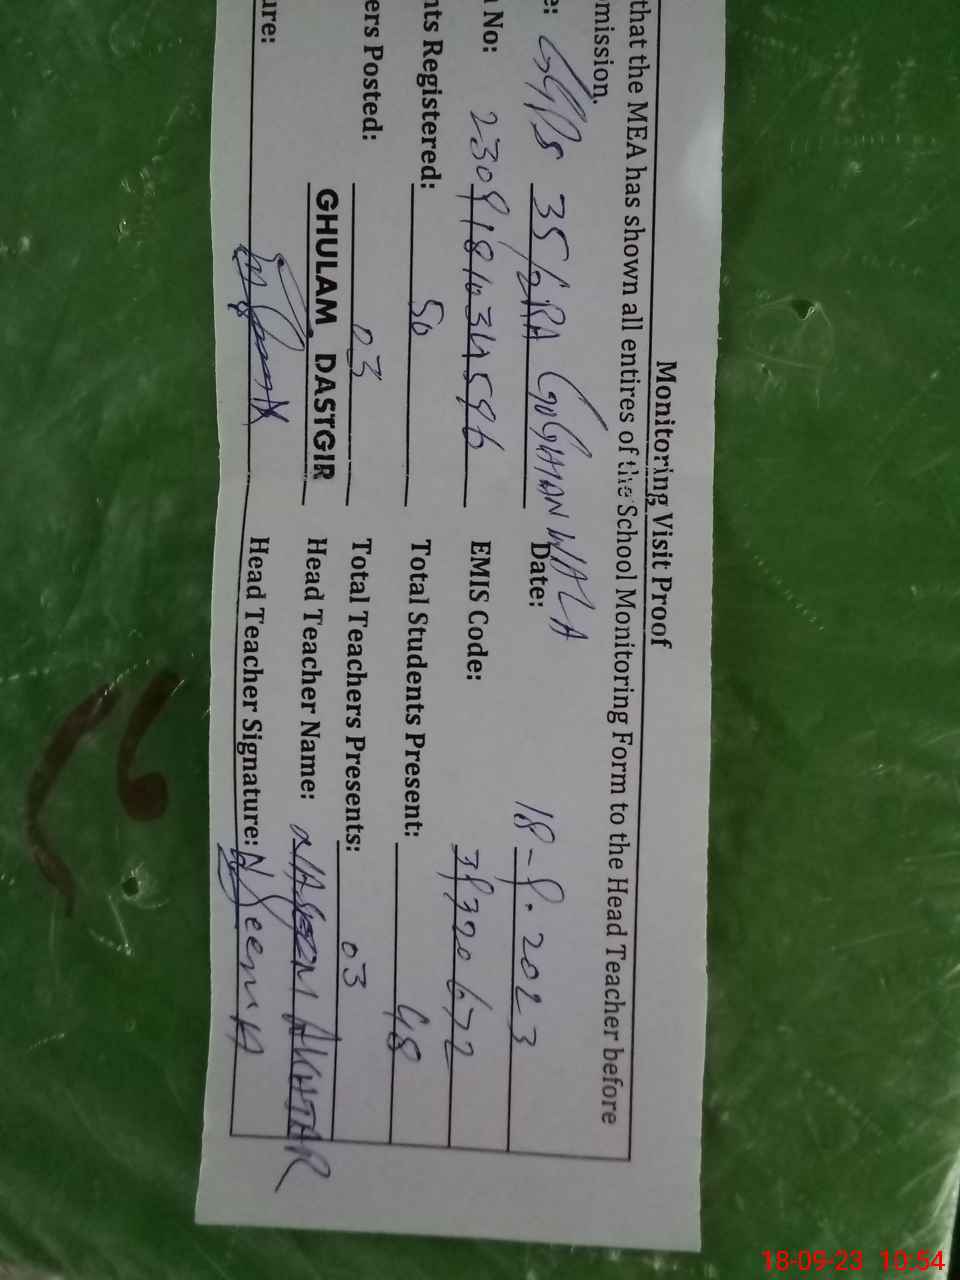 Monitoring Visit Proof
that the MEA has shown all entires of the School Monitoring Form to the Head Teacher before
mission.
e: GGPS 35/2RA GOGHIANWALA Date: 18-9-2023
No: 230918103 EMIS Code: 39320672
nts Registered: 50 Total Students Present: 48
ers Posted: 03 Total Teachers Presents: 03
GHULAM DASTGIR Head Teacher Name: NASEEM AKHTAR
ure: Head Teacher Signature: Naseem A
18-09-23 10:54